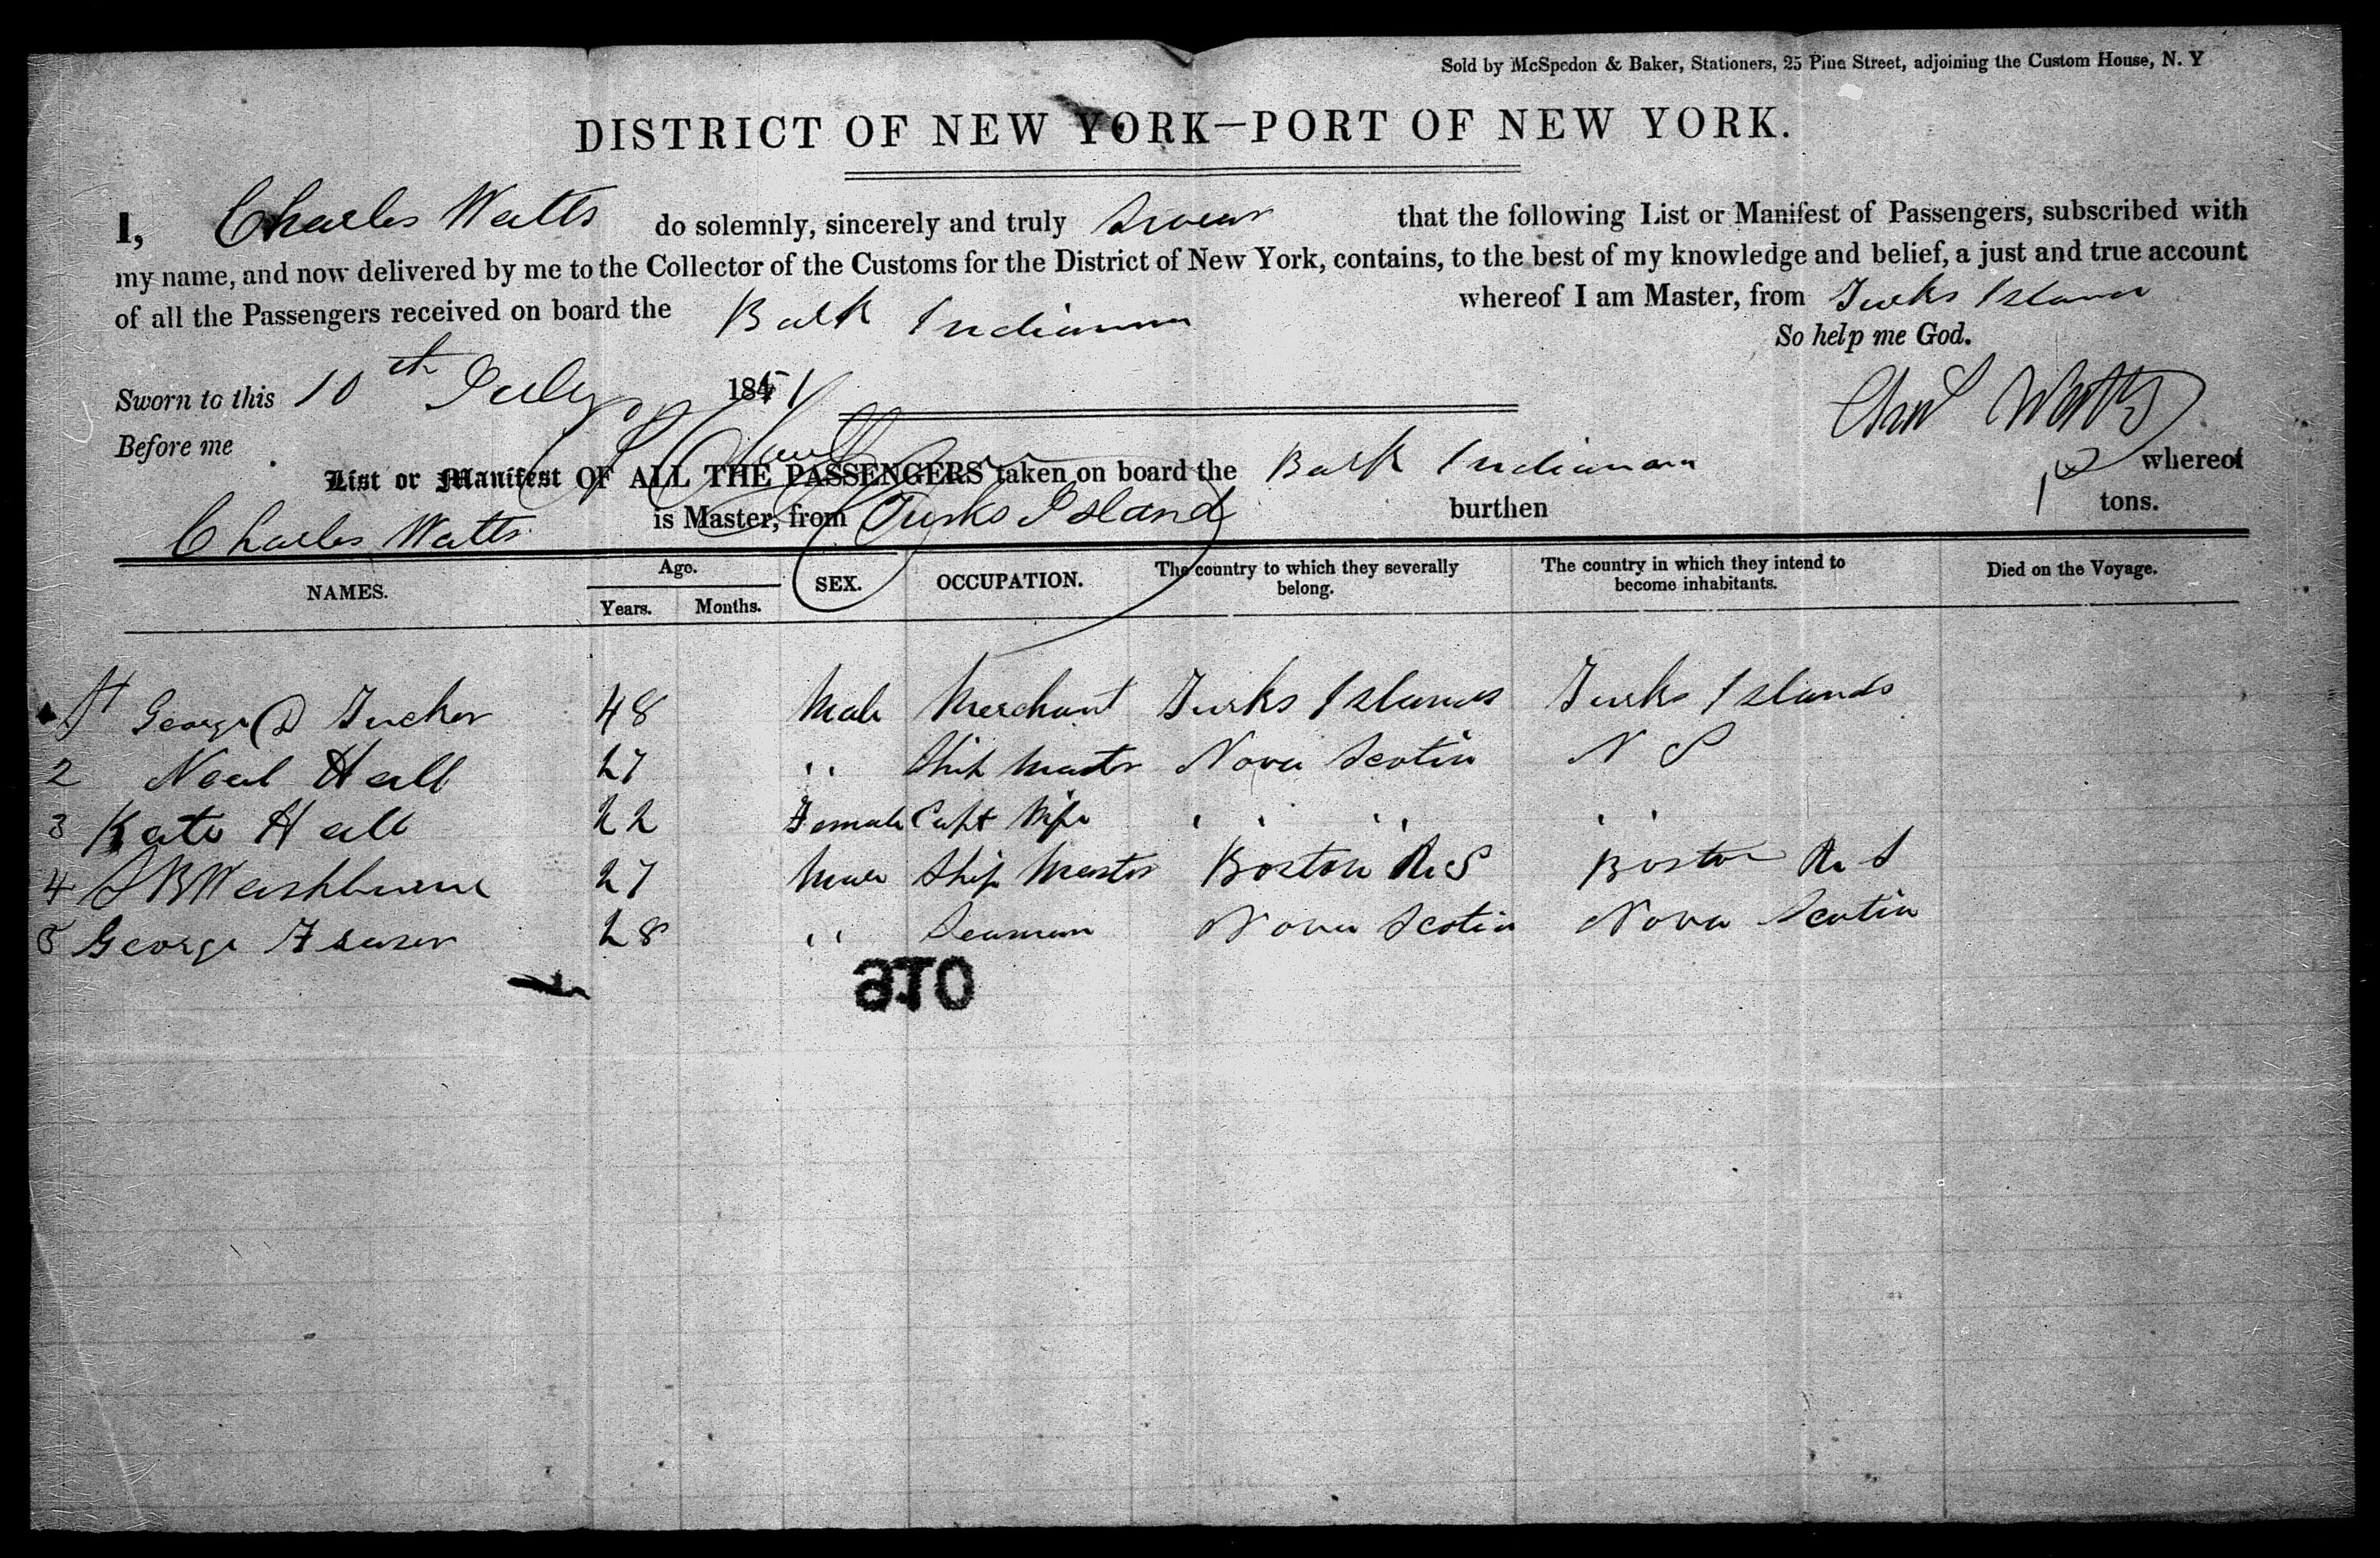 Sold by McSpedon & Baker, Stationers, 25 Pine Street, adjoining the Custom House, N. Y
DISTRICT OF NEW YORK—PORT OF NEW YORK.
I, Charles Watts do solemnly, sincerely and truly Swear that the following List or Manifest of Passengers, subscribed with
my name, and now delivered by me to the Collector of the Customs for the District of New York, contains, to the best of my knowledge and belief, a just and true account
of all the Passengers received on board the Bark Indiana whereof I am Master, from Turks Island
So help me God.
Sworn to this 10th July 1851
Chas Watts
Before me
List or Manifest OF ALL THE PASSENGERS taken on board the Bark Indiana whereof
Charles Watts is Master, from Turks Island burthen tons.
NAMES. Age. Years. Months. SEX. OCCUPATION. The country to which they severally belong. The country in which they intend to become inhabitants. Died on the Voyage.
1 George D Tucker 48 Male Merchant Turks Islands Turks Islands
2 Neal Hall 27 " Ship Master Nova Scotia N S
3 Kate Hall 22 Female Capt Wife " " " "
4 S B Washburne 27 Male Ship Master Boston Boston
5 George Fraser 28 " Seaman Nova Scotia Nova Scotia